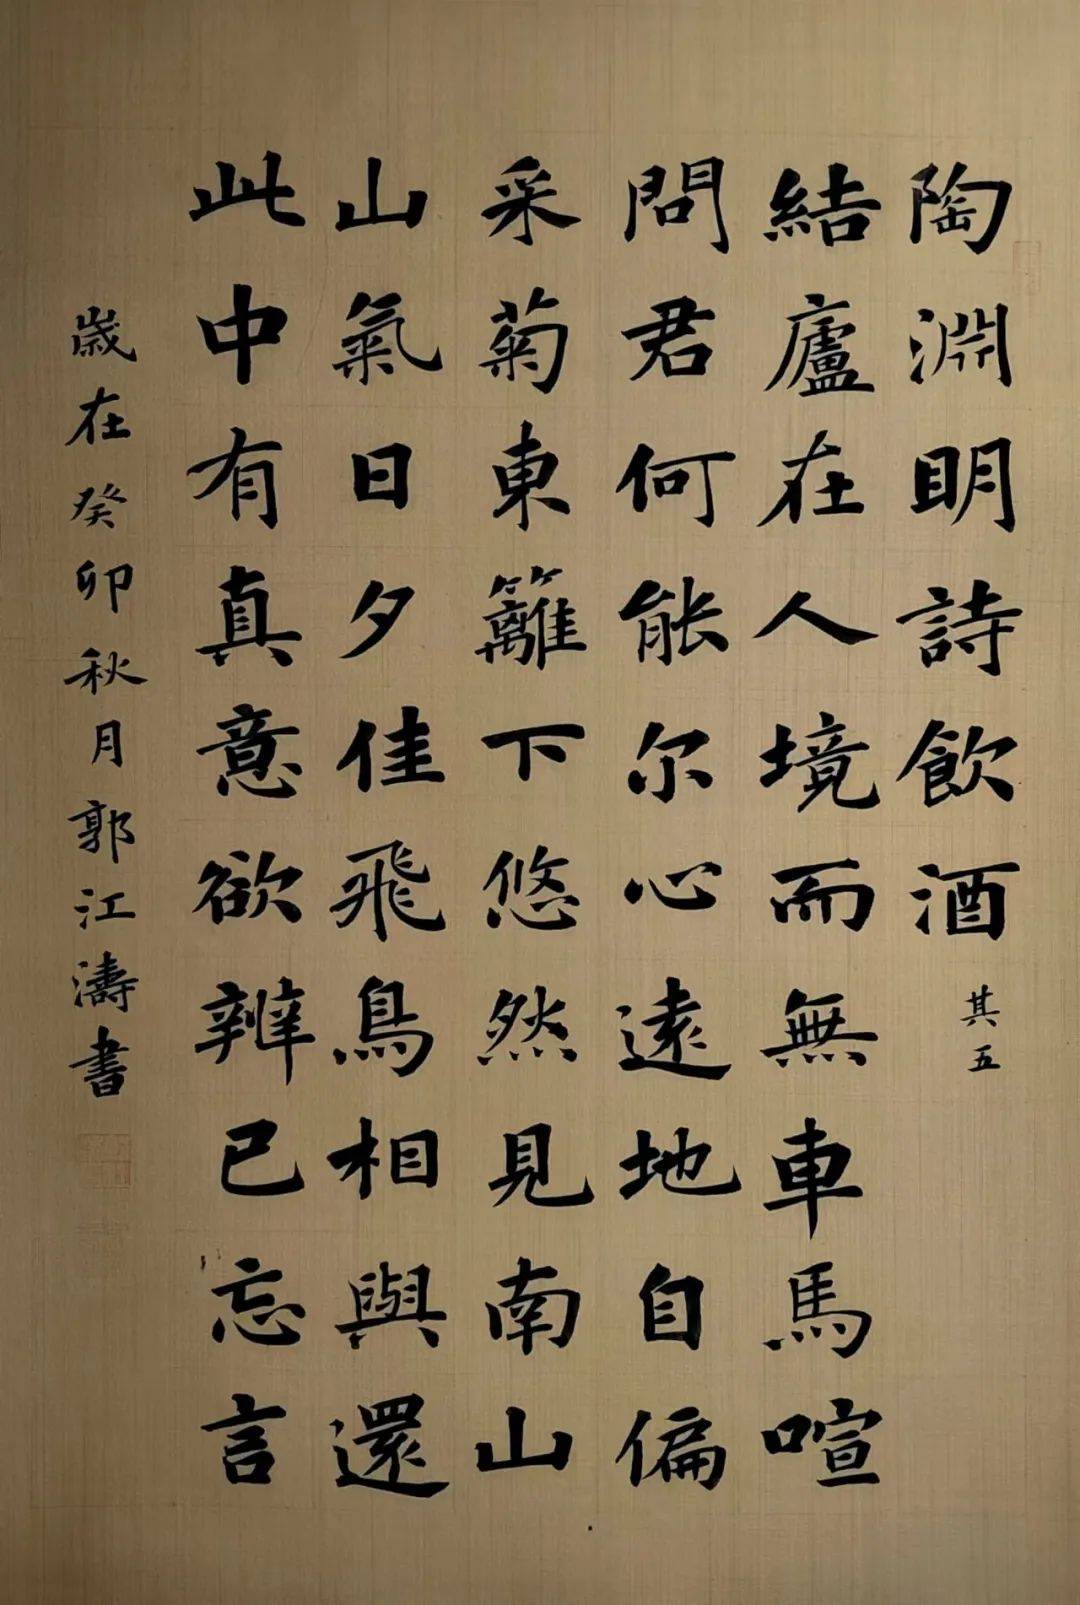 陶淵明詩飲酒其五
結廬在人境而無車馬喧
問君何能尔心遠地自偏
采菊東籬下悠然見南山
山氣日夕佳飛鳥相與還
此中有真意欲辨已忘言
歲在癸卯秋月郭江濤書